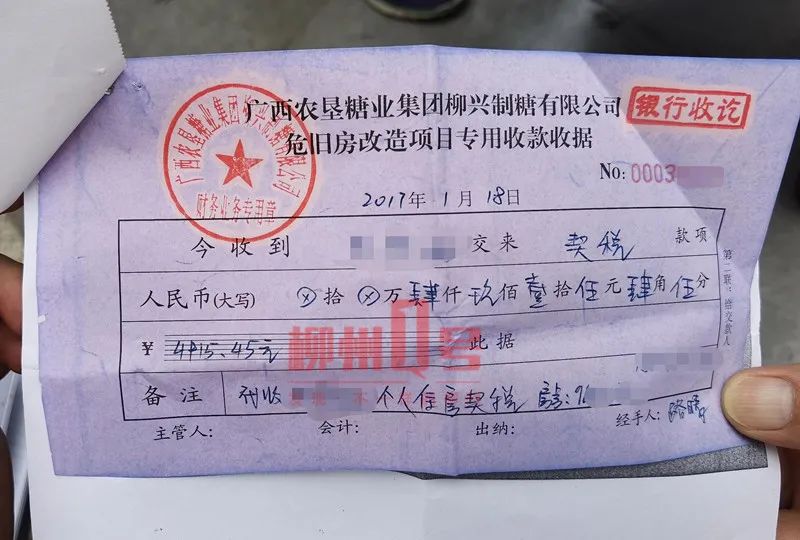 广西农垦糖业集团柳兴制糖有限公司
危旧房改造项目专用收款收据
银行收讫
广西农垦糖业集团柳兴制糖有限公司
财务业务专用章
No: 0003
2017年1月18日
今收到 交来 契税 款项
人民币(大写) ⊗拾⊗万肆仟玖佰壹拾伍元肆角伍分
¥ 4915.45元 此据
备注 代收 个人住房契税
主管人: 会计: 出纳: 经手人:
第二联:给交款人
柳州Q客